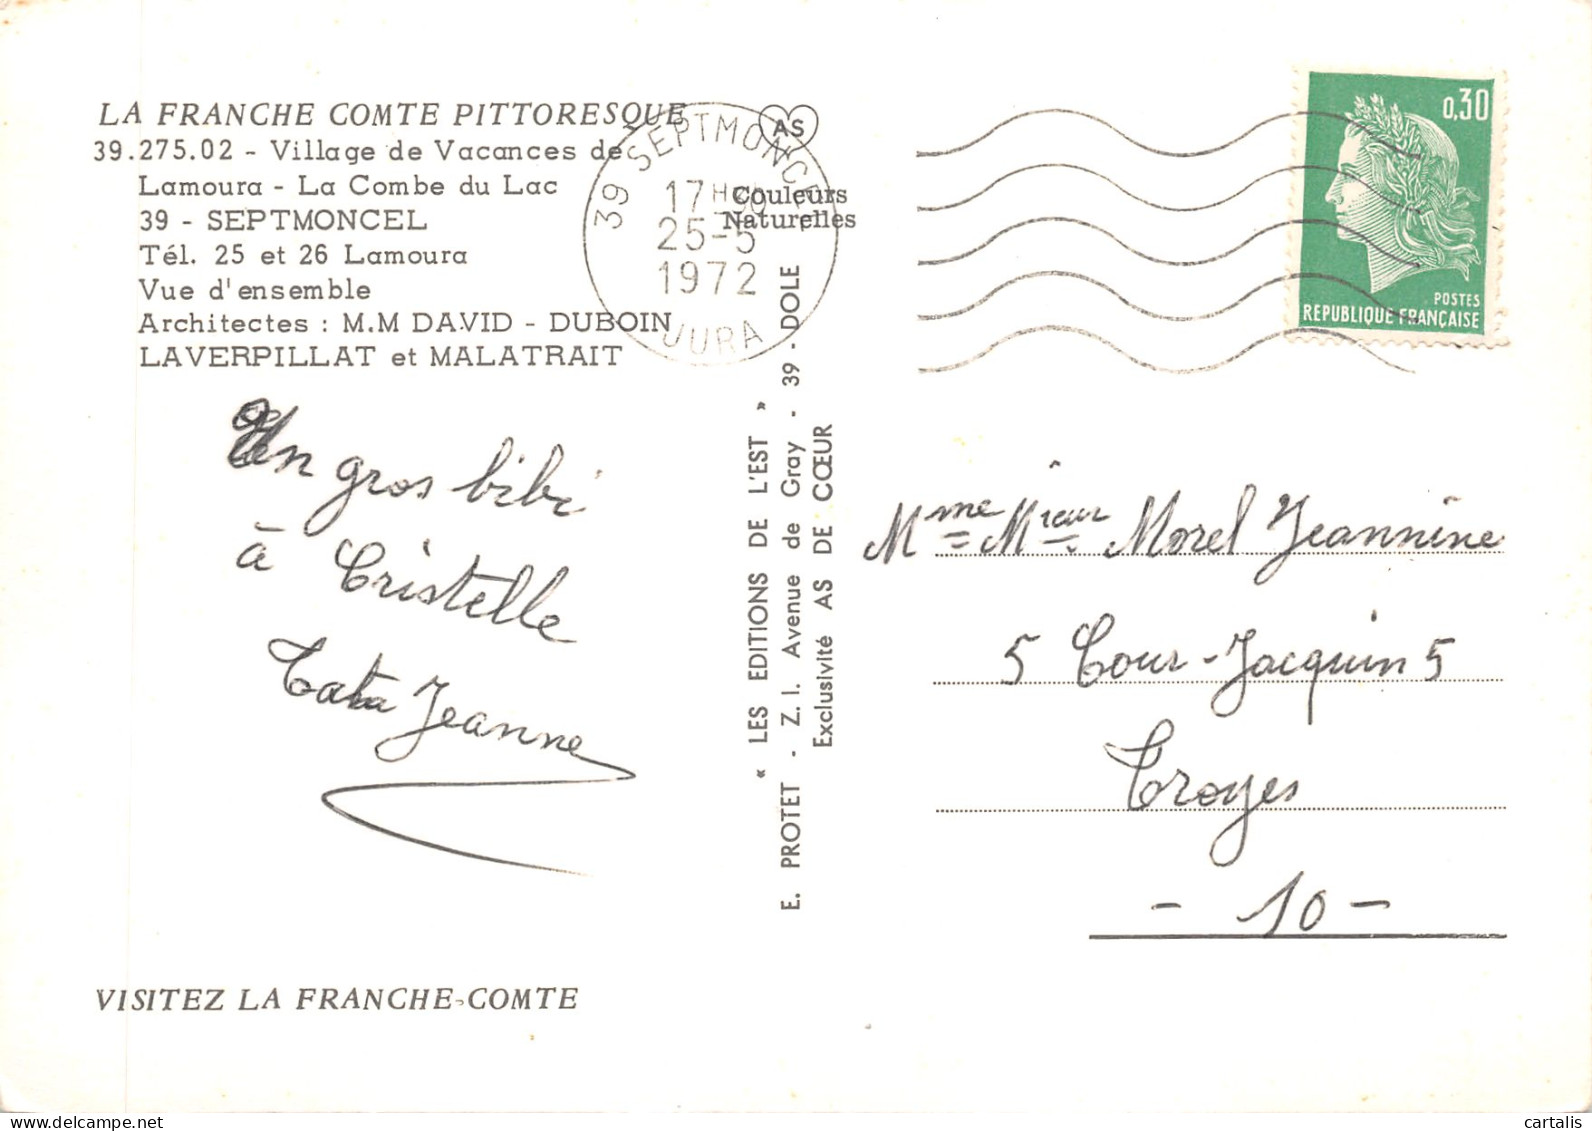 LA FRANCHE COMTE PITTORESQUE
39.275.02 - Village de Vacances de
Lamoura - La Combe du Lac
39 - SEPTMONCEL
Tél. 25 et 26 Lamoura
Vue d'ensemble
Architectes : M.M DAVID - DUBOIN
LAVERPILLAT et MALATRAIT
AS
Couleurs
Naturelles
39 SEPTMONCEL
17 H
25-5
1972
JURA
0,30
POSTES
REPUBLIQUE FRANÇAISE
Un gros bibi
à Cristelle
Tata Jeanne
« LES EDITIONS DE L'EST »
E. PROTET - Z.I. Avenue de Gray - 39 - DOLE
Exclusivité AS DE CŒUR
Mme Mieur Morel Jeannine
5 Cour-Jacquin 5
Troyes
- 10 -
VISITEZ LA FRANCHE-COMTE
cartalis